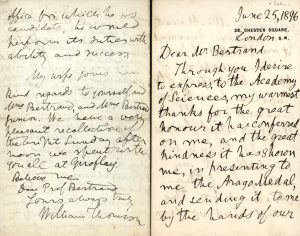 office for which he is
candidate, he would
perform its duties with
ability and success
My wife joins in
kind regards to yourself and
Mrs Bertrand, and Mrs Bertrand
junior. We have a very
pleasant recollection of
the bright Sunday after
noon we spent with
you all at
Believe me
Dear Prof Bertrand
Yours always truly
William Thomson
June 25, 1896
28, CHESTER SQUARE,
London S.W.
Dear Mr Bertrand
Through you I desire
to express to the Academy
of Sciences, my warmest
thanks for the great
honour it has conferred
on me, and the great
kindness it has shown
me, in presenting to
me the Arago Medal
and sending it to me
by the hands of our